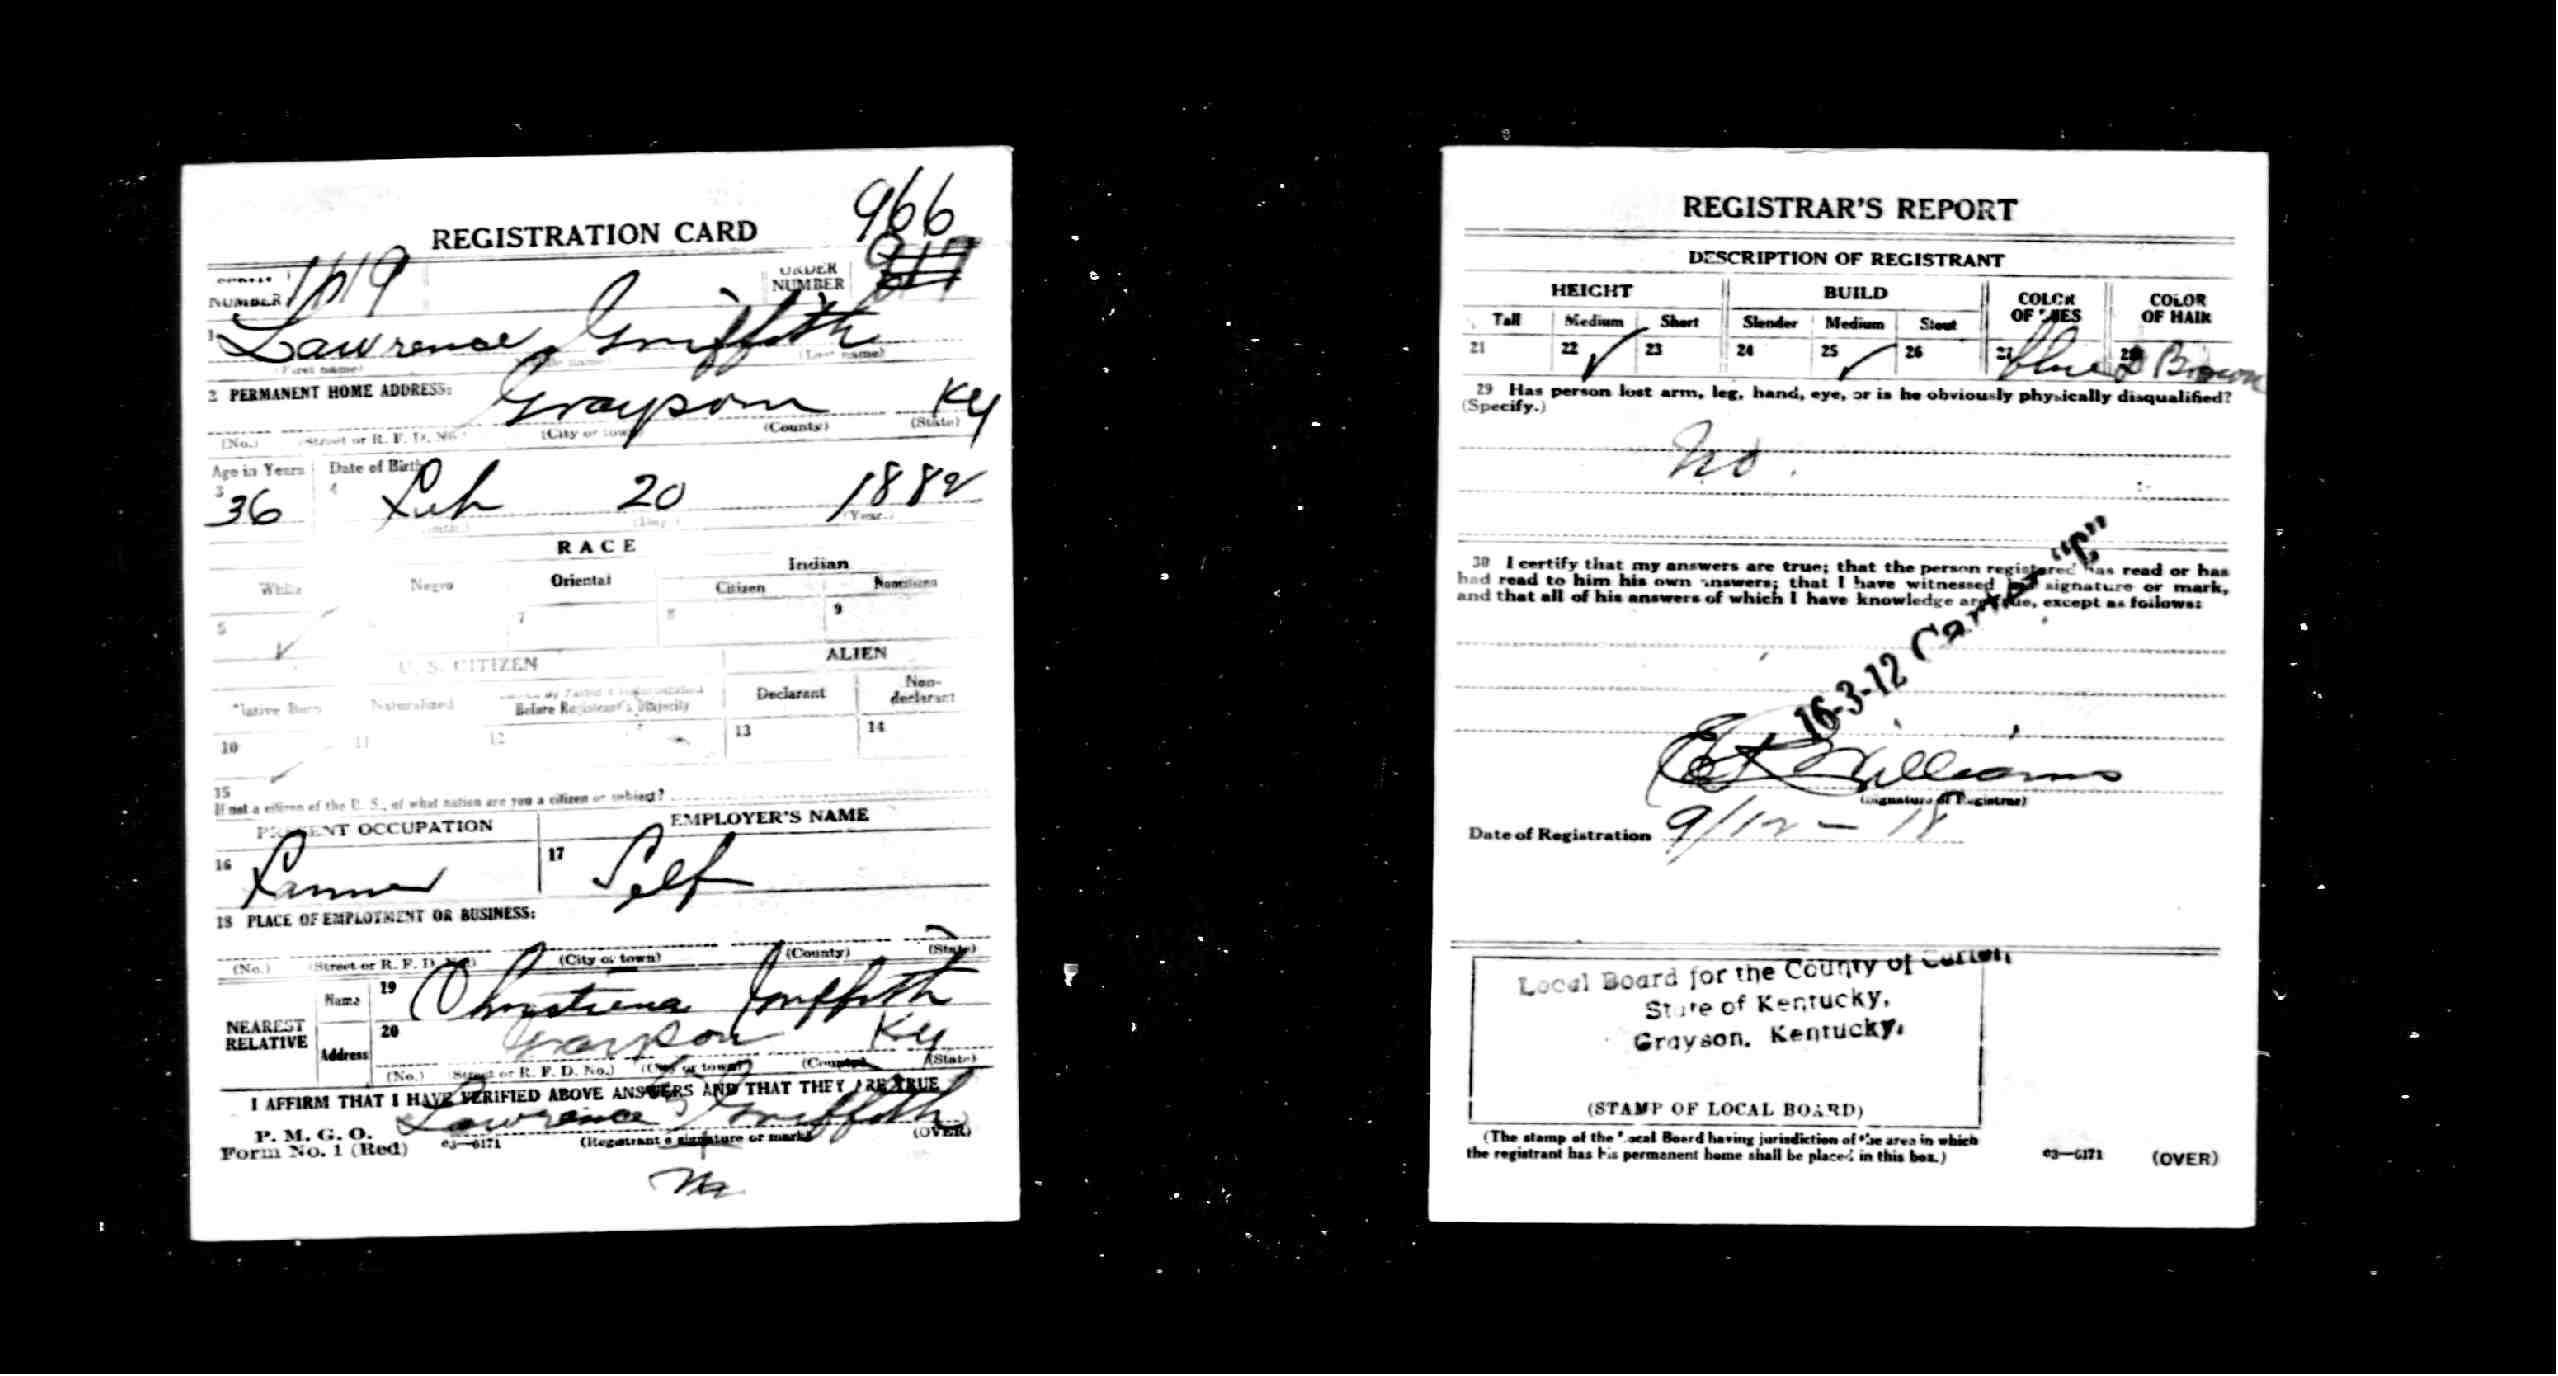 REGISTRATION CARD
966
SERIAL NUMBER
ORDER NUMBER
1 Lawrence Griffith
(First name) (Last name)
2 PERMANENT HOME ADDRESS:
Grayson Ky
(No.) (Street or R. F. D. No.) (City or town) (County) (State)
Age in Years Date of Birth
3 36 4 Feb 20 1882
(Month.) (Day.) (Year.)
RACE
White Negro Oriental Indian
Citizen Noncitizen
5 ✓ 7 8 9
U. S. CITIZEN ALIEN
Native Born Naturalized Citizen by Father's Naturalization Before Registrant's Majority Declarant Non-declarant
10 ✓ 11 12 13 14
15
If not a citizen of the U. S., of what nation are you a citizen or subject?
PRESENT OCCUPATION EMPLOYER'S NAME
16 Farmer 17 Self
18 PLACE OF EMPLOYMENT OR BUSINESS:
(No.) (Street or R. F. D. No.) (City or town) (County) (State)
NEAREST RELATIVE
Name 19 Christiena Griffith
Address 20 Grayson Ky
(No.) (Street or R. F. D. No.) (City or town) (County) (State)
I AFFIRM THAT I HAVE VERIFIED ABOVE ANSWERS AND THAT THEY ARE TRUE
P. M. G. O.
Form No. 1 (Red) 03—6171 Lawrence Griffith
(Registrant's signature or mark) (OVER)
REGISTRAR'S REPORT
DESCRIPTION OF REGISTRANT
HEIGHT BUILD COLOR OF EYES COLOR OF HAIR
Tall Medium Short Slender Medium Stout
21 22 ✓ 23 24 25 ✓ 26 27 blue 28 Brown
29 Has person lost arm, leg, hand, eye, or is he obviously physically disqualified?
(Specify.)
No.
30 I certify that my answers are true; that the person registered has read or has
had read to him his own answers; that I have witnessed his signature or mark,
and that all of his answers of which I have knowledge are true, except as follows:
16-3-12 Carter "C"
Williams
(Signature of Registrar)
Date of Registration 9/12-18
Local Board for the County of Carter
State of Kentucky,
Grayson, Kentucky.
(STAMP OF LOCAL BOARD)
(The stamp of the Local Board having jurisdiction of the area in which
the registrant has his permanent home shall be placed in this box.)
03—6171 (OVER)